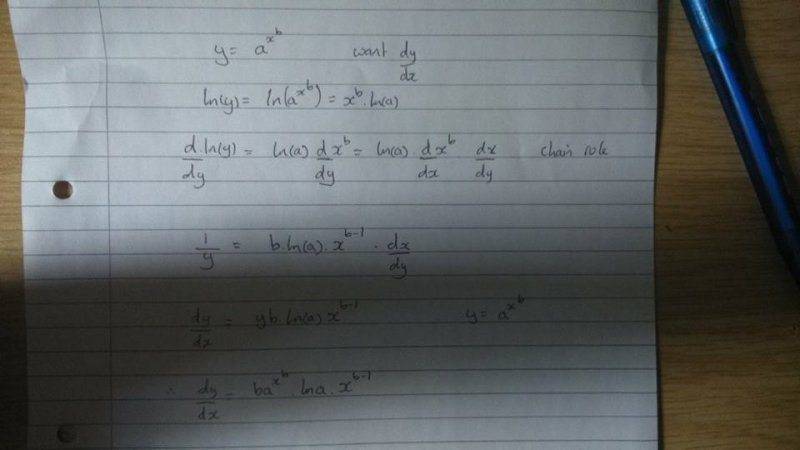 y = a^{x^b} want dy/dx
ln(y) = ln(a^{x^b}) = x^b . ln(a)
d/dy . ln(y) = ln(a) d/dy x^b = ln(a) . d/dx x^b dx/dy chain rule
1/y = b . ln(a) . x^{b-1} . dx/dy
dy/dx = yb . ln(a) x^{b-1} y = a^{x^b}
∴ dy/dx = ba^{x^b} . ln a . x^{b-1}